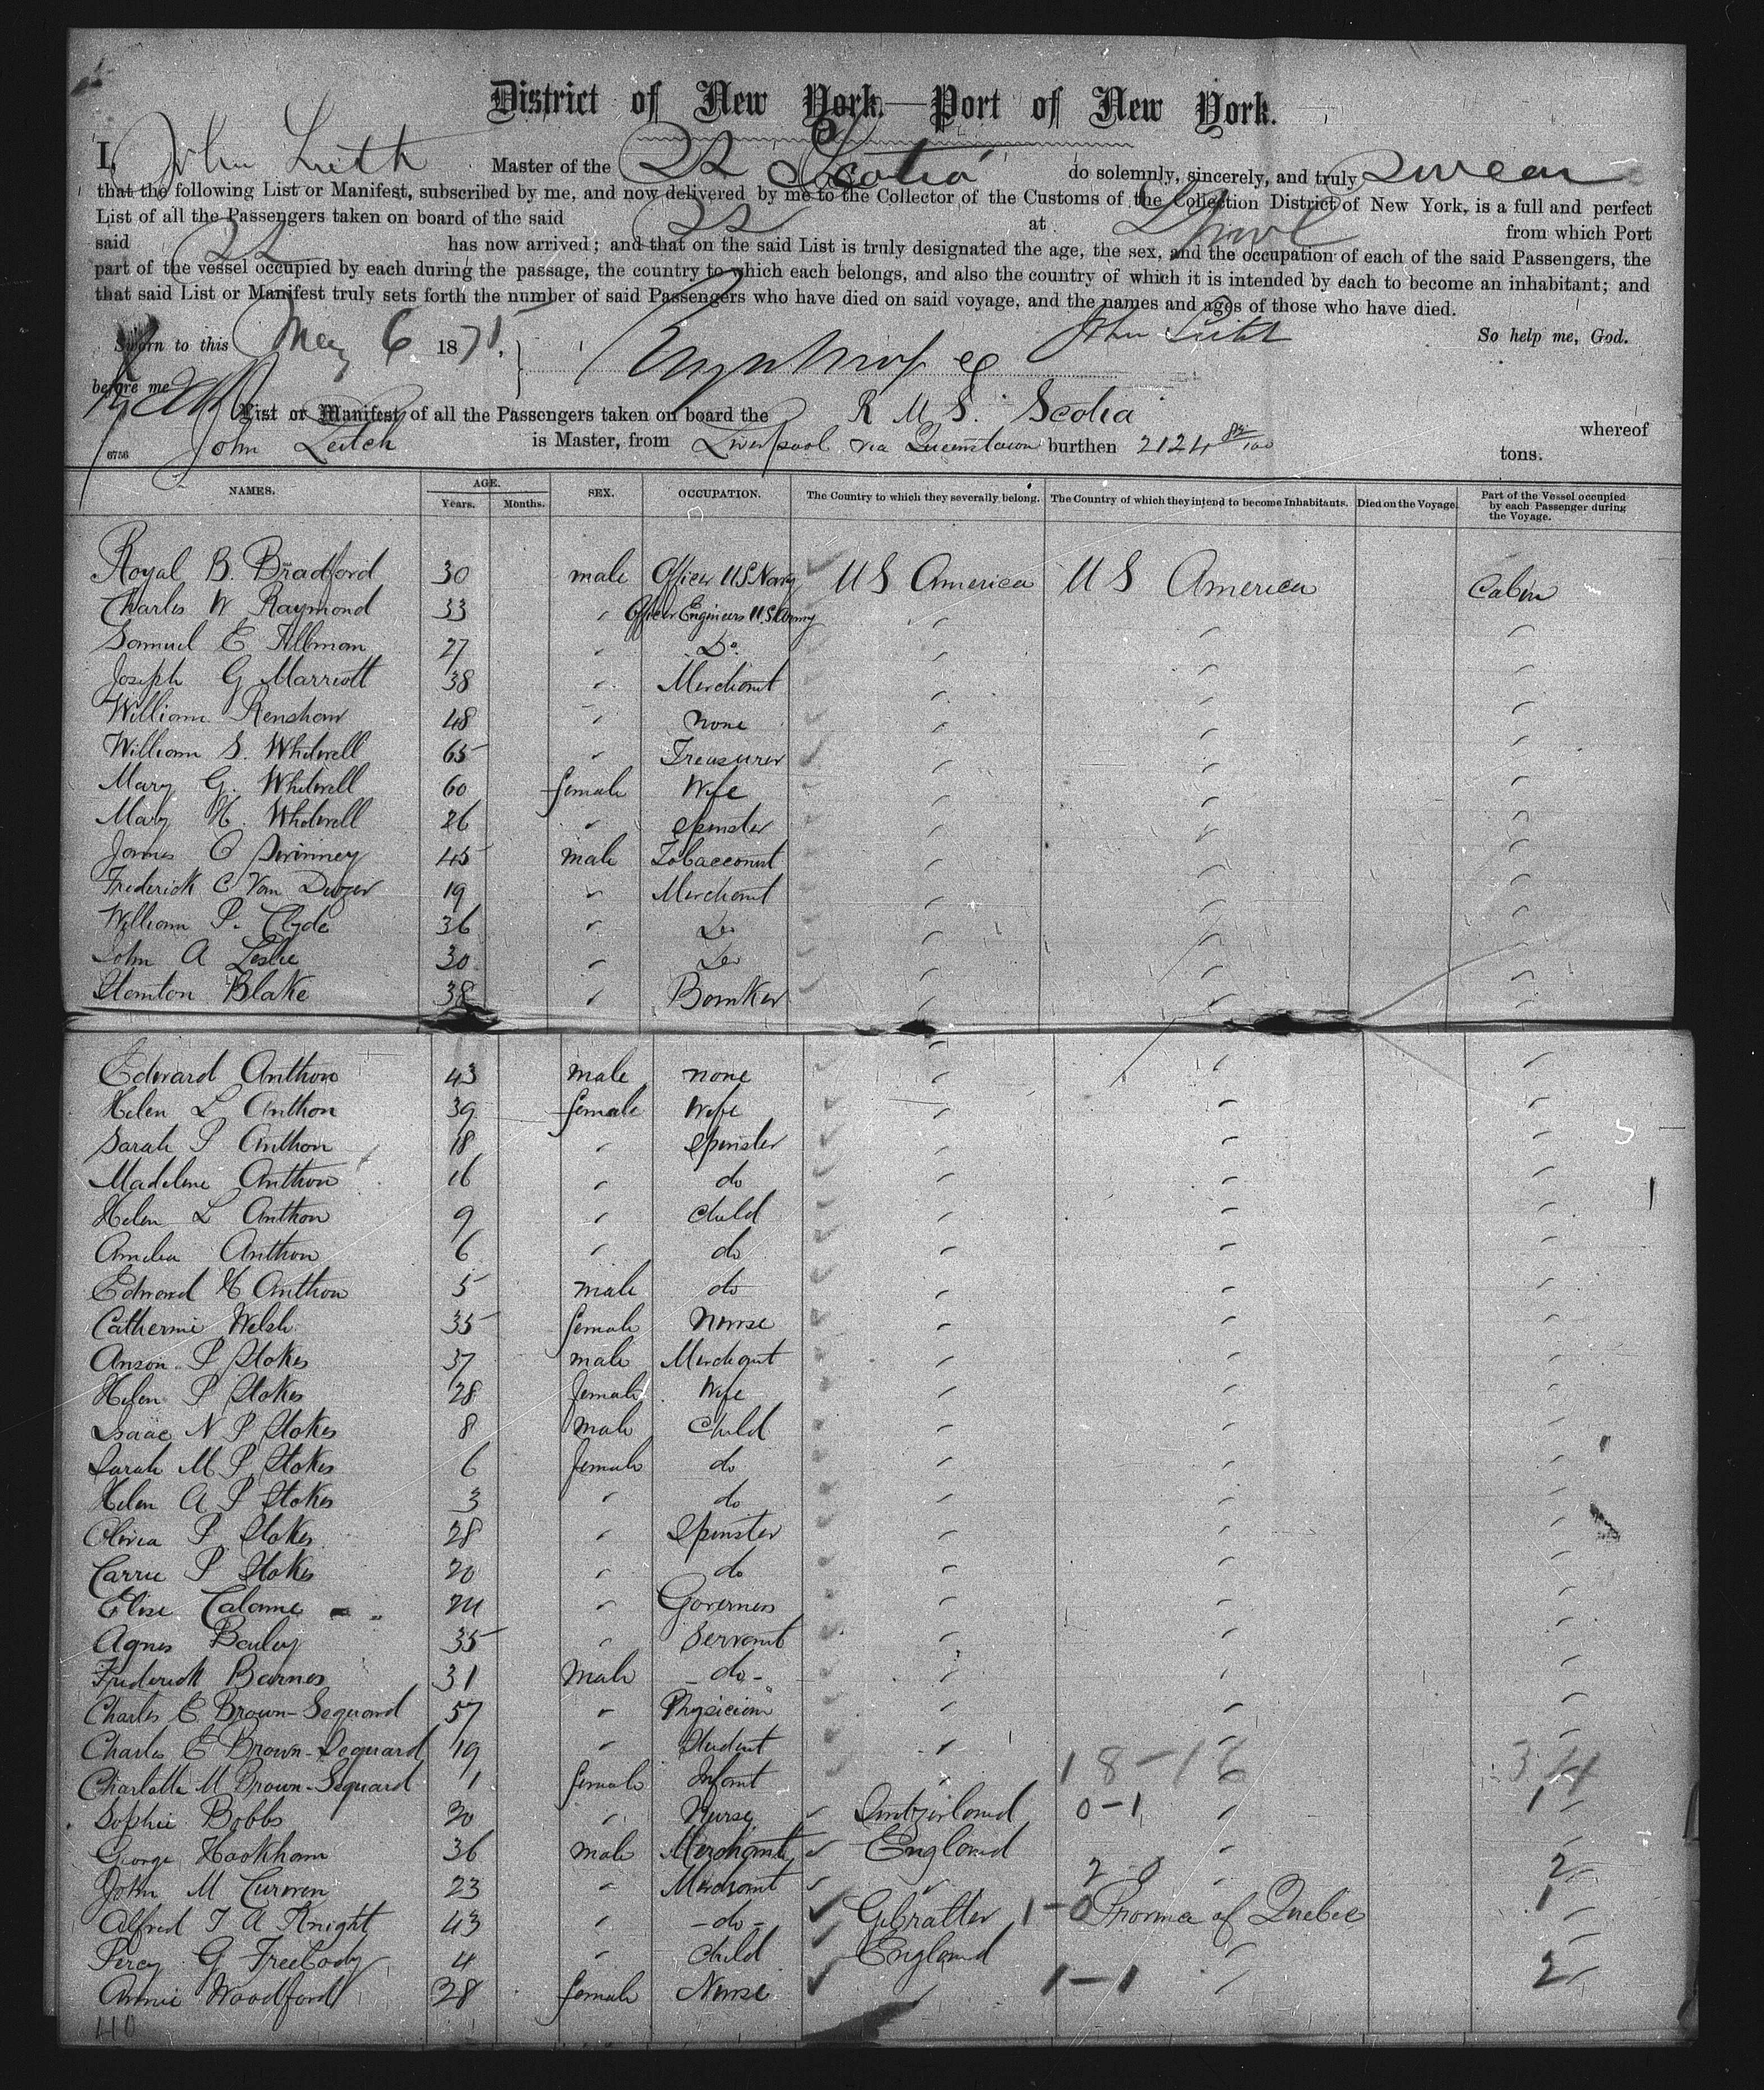 District of New York—Port of New York.
I, John Leitch Master of the SS Scotia do solemnly, sincerely, and truly swear
that the following List or Manifest, subscribed by me, and now delivered by me to the Collector of the Customs of the Collection District of New York, is a full and perfect
List of all the Passengers taken on board of the said SS at L'pool from which Port
said SS has now arrived; and that on the said List is truly designated the age, the sex, and the occupation of each of the said Passengers, the
part of the vessel occupied by each during the passage, the country to which each belongs, and also the country of which it is intended by each to become an inhabitant; and
that said List or Manifest truly sets forth the number of said Passengers who have died on said voyage, and the names and ages of those who have died.
Sworn to this May 6 1875, John Leitch So help me, God.
before me
List or Manifest of all the Passengers taken on board the R M S. Scotia whereof
6756 John Leitch is Master, from Liverpool via Queenstown burthen 2124 82/100 tons.
NAMES. AGE. Years. Months. SEX. OCCUPATION. The Country to which they severally belong. The Country of which they intend to become Inhabitants. Died on the Voyage. Part of the Vessel occupied by each Passenger during the Voyage.
Royal B. Bradford 30 male Officer U.S. Navy U S America U S America Cabin
Charles W Raymond 33 " Officer Engineers U.S Army " " "
Samuel E Tillman 27 " Do. " " "
Joseph G Marriott 38 " Merchant " " "
William Renshaw 48 " none " " "
William S. Whitwell 65 " Treasurer " " "
Mary G. Whitwell 60 female Wife " " "
Mary H. Whitwell 26 " Spinster " " "
James O Swinney 45 male Tobacconist " " "
Frederick C Van Duzer 19 " Merchant " " "
William P. Clyde 36 " Do " " "
John A Leslie 30 " Do " " "
Stanton Blake 38 " Banker " " "
Edward Anthon 43 male none " " "
Helen L Anthon 39 female Wife " " "
Sarah P Anthon 18 " Spinster " " "
Madeline Anthon 16 " do " " "
Helen L Anthon 9 " Child " " "
Amelia Anthon 6 " do " " "
Edward H Anthon 5 male do " " "
Catherine Welsh 35 female Nurse " " "
Anson P Stokes 37 male Merchant " " "
Helen P Stokes 28 female Wife " " "
Isaac N P Stokes 8 male Child " " "
Sarah M P Stokes 6 female do " " "
Helen A P Stokes 3 " do " " "
Olivia P Stokes 28 " Spinster " " "
Carrie P Stokes 20 " do " " "
Elise Calame 24 " Governess " " "
Agnes Bailey 35 " Servant " " "
Frederick Barnes 31 Male - do - " " "
Charles E Brown-Sequard 57 " Physician " " "
Charles E Brown-Sequard 19 " Student " " "
Charlotte M Brown-Sequard 1 female Infant " 18-16 34
Sophie Bobbs 30 " Nurse Switzerland 0-1 " 1 "
George Hookham 36 male Merchant England " "
John M Curwen 23 " Merchant " 2 0 " 2 "
Alfred T A Knight 43 " - do - Gibralter 1-0 Province of Quebec 1 "
Percy G Freebody 4 " Child England " "
Annie Woodford 28 female Nurse " 1-1 " 2 "
40